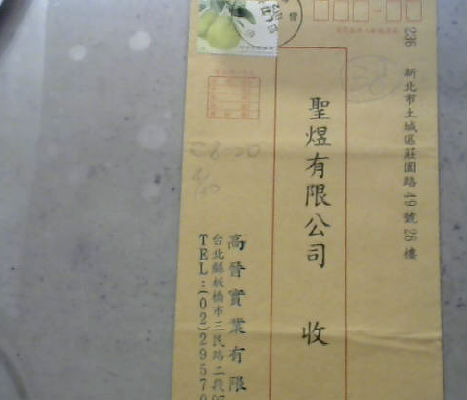 236
新北市土城區莊園路49號26樓
聖煜有限公司 收
高晉實業有限
台北縣板橋市三民路二段
TEL:(02)29570